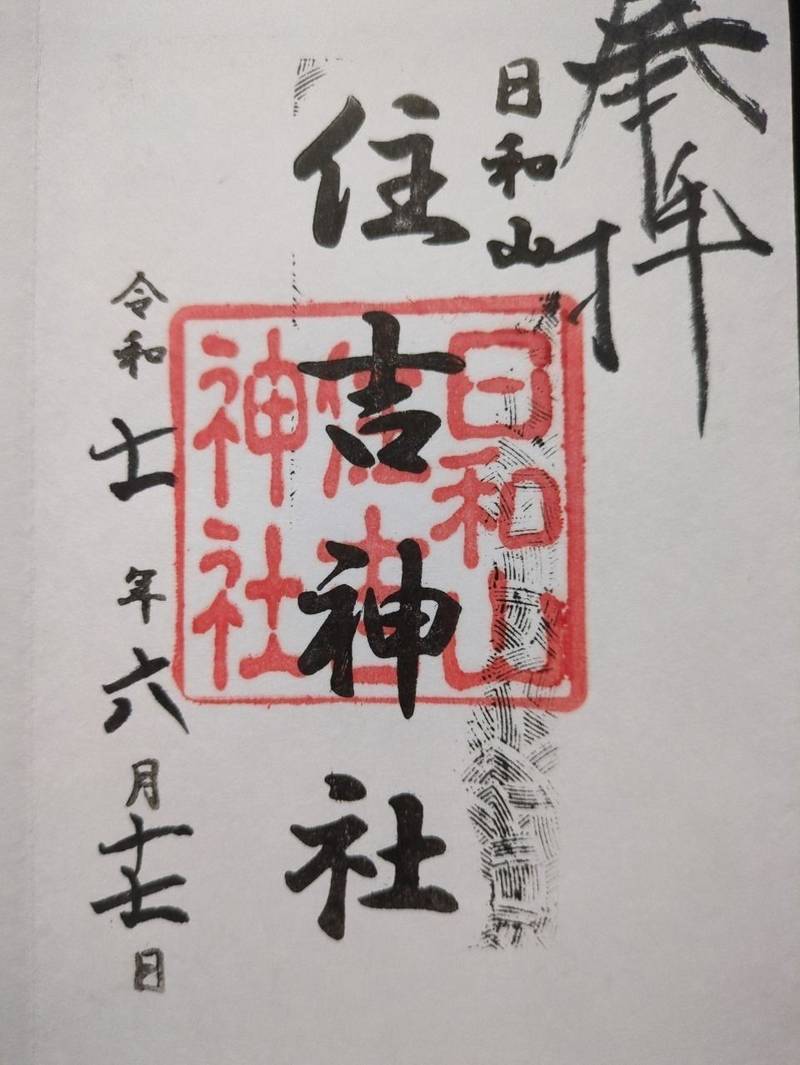 奉拝
日和山
住吉神社
日和山
神社
令和七年六月十七日